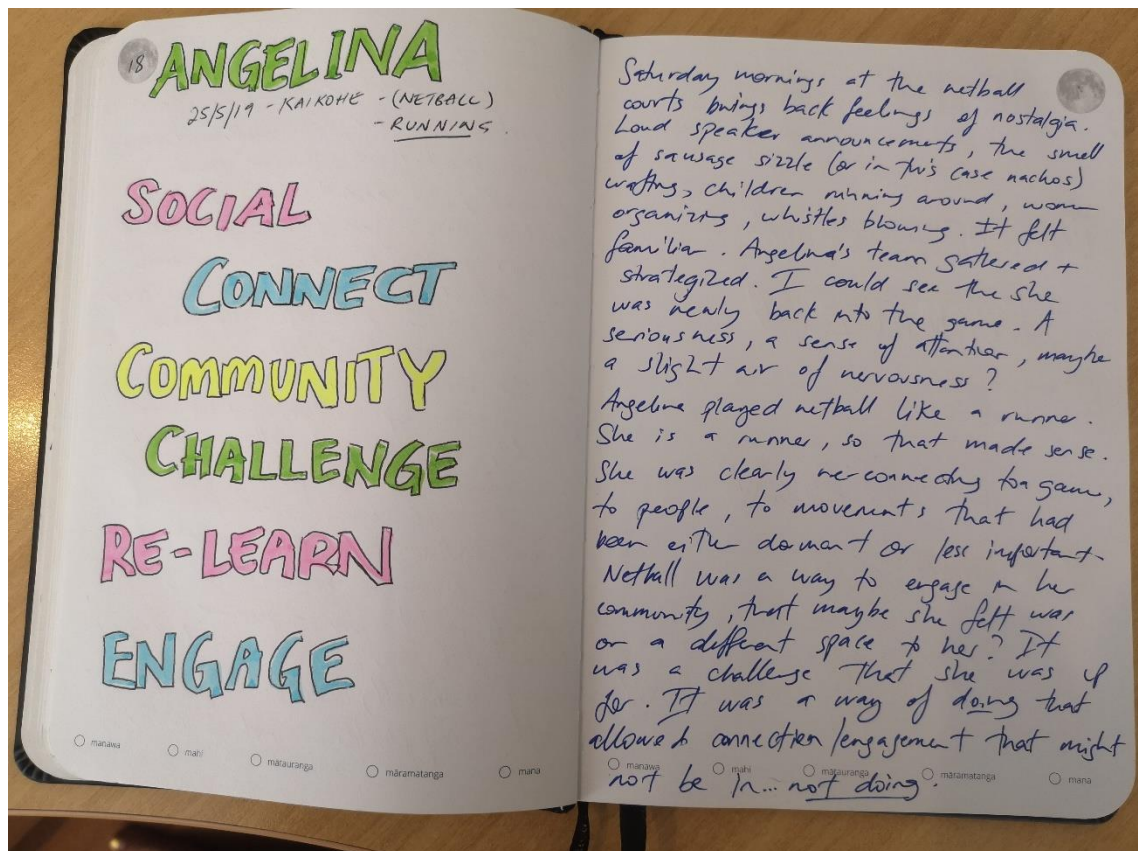 18
ANGELINA
25/5/19 - KAIKOHE - (NETBALL)
- RUNNING.
SOCIAL
CONNECT
COMMUNITY
CHALLENGE
RE-LEARN
ENGAGE
manawa mahi mātauranga māramatanga mana
Saturday mornings at the netball
courts brings back feelings of nostalgia.
Loud speaker announcements, the smell
of sausage sizzle (or in this case nachos)
wafting, children running around, women
organizing, whistles blowing. It felt
familiar. Angelina's team gathered +
strategized. I could see the she
was newly back into the game. A
seriousness, a sense of attention, maybe
a slight air of nervousness?
Angelina played netball like a runner.
She is a runner, so that made sense.
She was clearly re-connecting to a game,
to people, to movements that had
been either dormant or less important.
Netball was a way to engage in her
community, that maybe she felt was
on a different space to her? It
was a challenge that she was up
for. It was a way of doing that
allowed connection/engagement that might
manawa mahi mātauranga māramatanga mana
not be in... not doing.